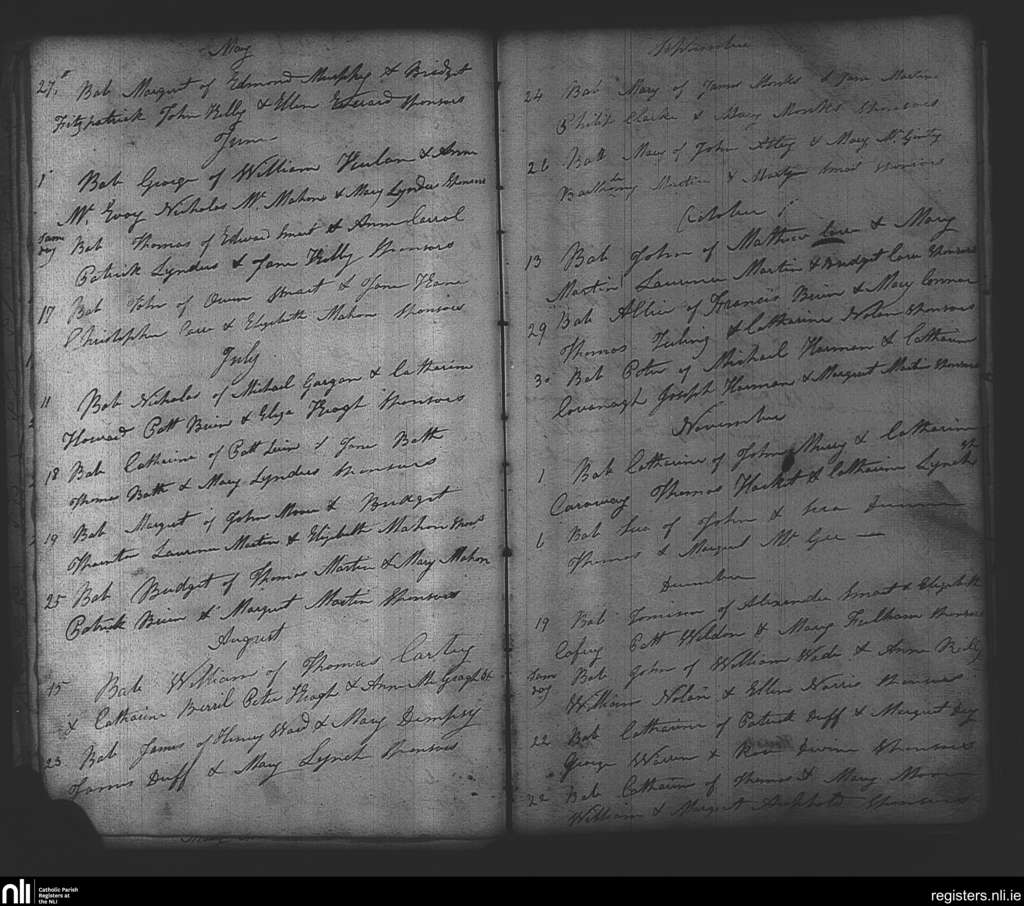 May
27 Bab Margret of Edmond Murphy & Bridget
Fitzpatrick John Kelly & Ellen Edward Sponsors
June
1 Bab George of William & Ann
Mc Evoy Nicholas Mc Mahone & Mary Lynders Sponsors
Same day Bab Thomas of Edward Smart & Ann Carrol
Patrick Lynders & Jane Kelly Sponsors
17 Bab John of Owen Smart & Jane Kane
Christopher & Elizabeth Mahon Sponsors
July
11 Bab Nicholas of Michael Gargan & Catharine
Howard Patt Birn & Eliza Keogh Sponsors
18 Bab Catharine of Patt & Jane Bath
Thomas Bath & Mary Lynders Sponsors
19 Bab Margret of John Moore & Bridget
Thornton Laurence Martin & Elizabeth Mahon
25 Bab Bridget of Thomas Martin & Mary Mahon
Patrick Birn & Margret Martin Sponsors
August
15 Bab William of Thomas Cartey
& Catharine Berrel Peter Keogh & Ann
23 Bab James of Henry Ward & Mary Dempsy
James Duff & Mary Lynch Sponsors
24 Bab Mary of James Monks & Jane Martin
Philip Clarke & Mary Monks Sponsors
26 Bab of John & Mary Mc Ginty
Martin & Smart Sponsors
October
13 Bab John of Matthew & Mary
Martin Laurence Martin & Bridget Sponsors
29 Bab of Francis Birn & Mary Connor
Thomas & Catharine Nolan Sponsors
30 Bab Peter of Michael Harman & Catharine
Cavanagh Joseph Harman & Margret Martin Sponsors
November
1 Bab Catharine of John & Catharine
Caraway Thomas Hacket & Catharine Lynch
6 Bab of John &
Thomas & Margret Mc Gee
19 Bab of Alexander Smart & Elizabeth
Patt Weldon & Mary Sponsors
Same day Bab John of William Wade & Anne
William Nolan & Ellen Norris Sponsors
22 Bab Catharine of Patrick Duff & Margret Day
George Warren & Sponsors
22 Bab Catharine of Thomas & Mary Moore
William & Margret Sponsors
nli
Catholic Parish
Registers at
the NLI
registers.nli.ie